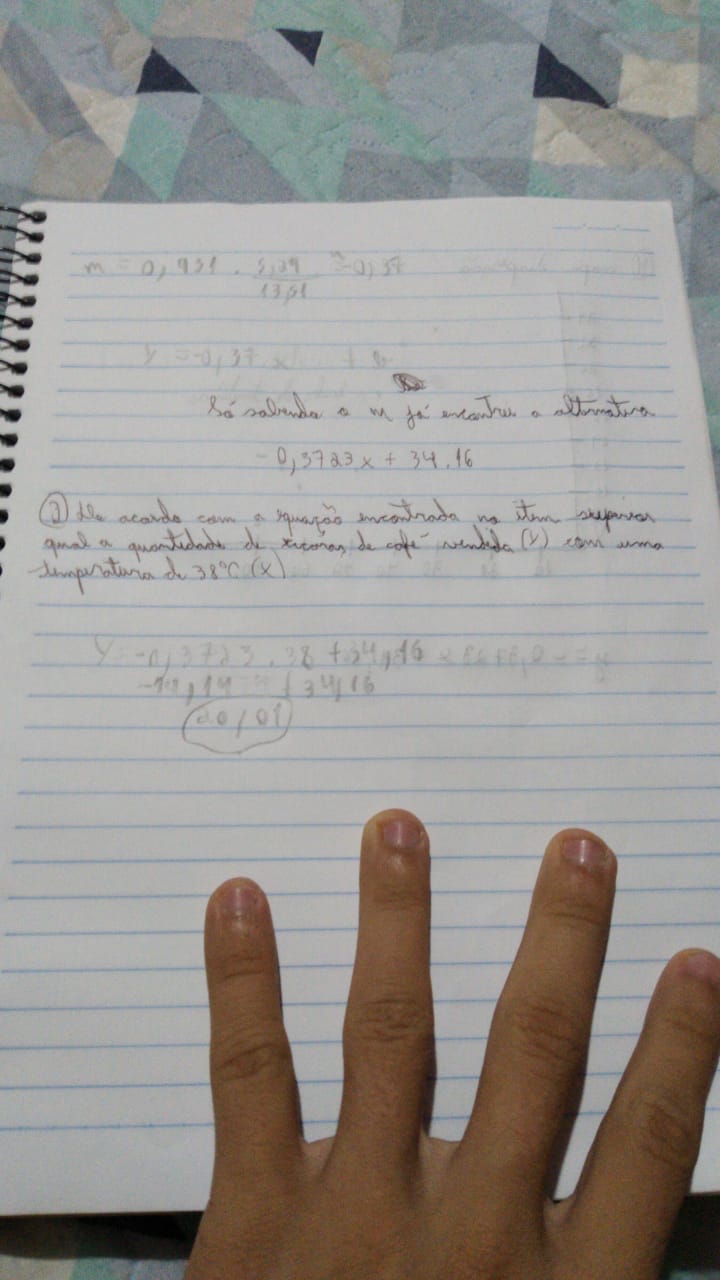 m = 0,951 . 5,29 ≈ -0,37
13,51
Y = -0,37 x + b
Só sabendo o m já encontrei a alternativa
-0,3723x + 34.16
De acordo com a equação encontrada no item superior
qual a quantidade de xícaras de café vendida (Y) com uma
temperatura de 38°C (X)
Y = -0,3723 . 38 + 34,16
-14,14 + 34,16
20,01